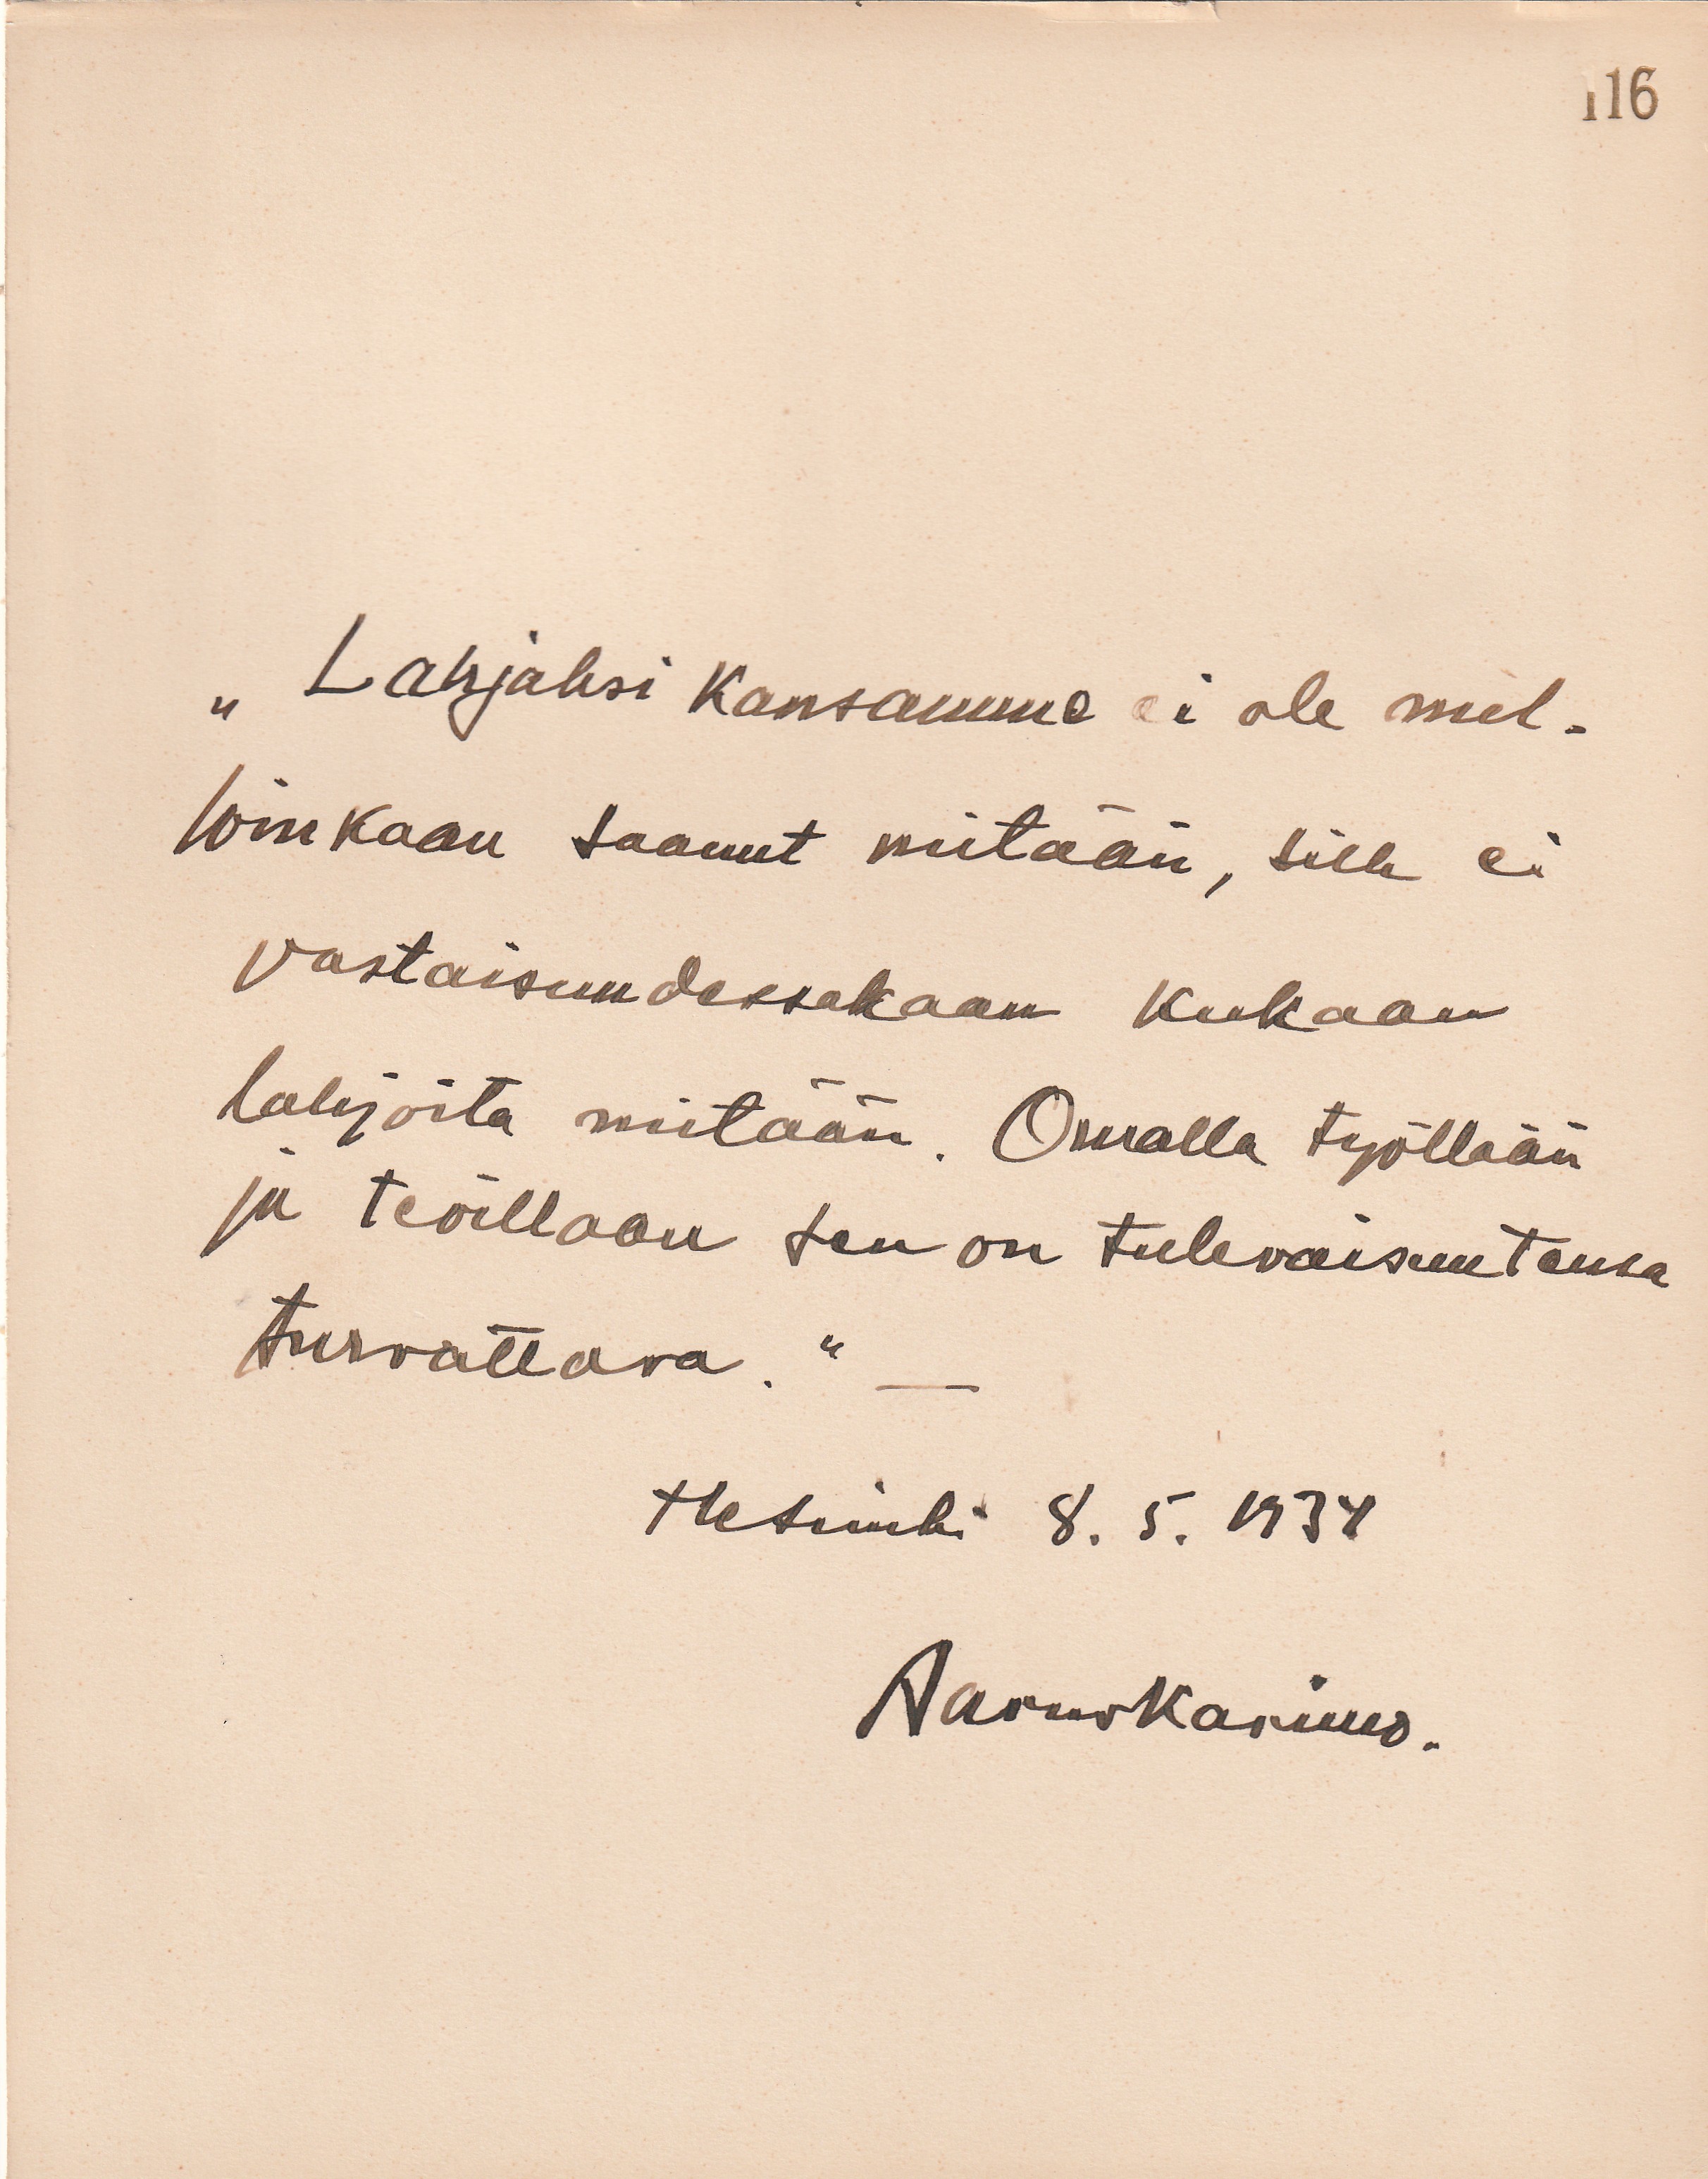 116
„ Lahjaksi kansamme ei ole mil-
loinkaan saanut mitään, sille ei
vastaisuudessakaan kukaan
lahjoita mitään. Omalla työllään
ja teoillaan sen on tulevaisuutensa
turvattava. “ —
Helsinki 8. 5. 1934
Aarno Karimo.